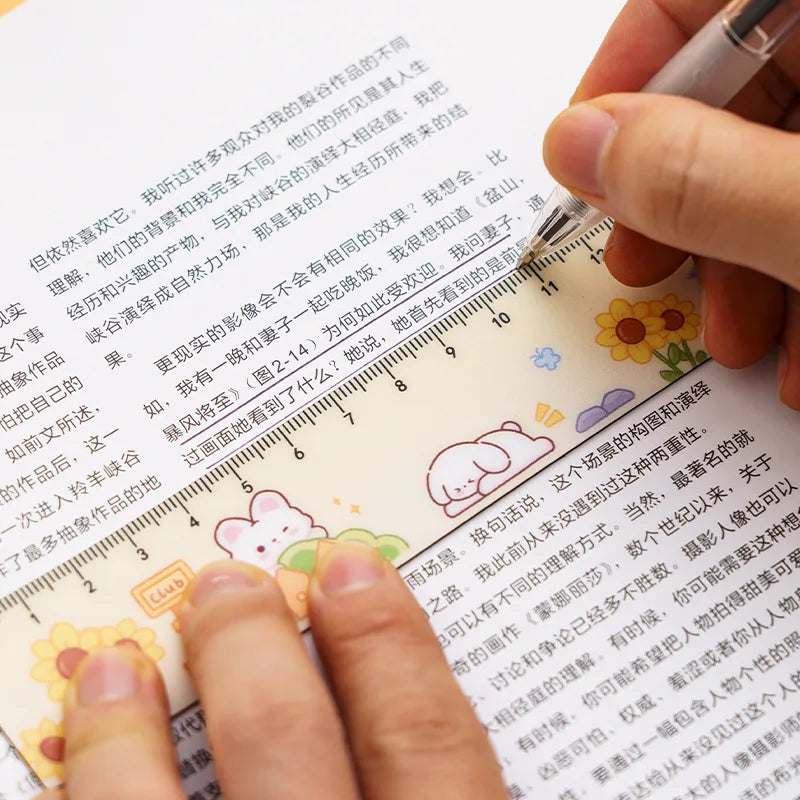 但依然喜欢它。我听过许多观众对我的裂谷作品的不同
理解，他们的背景和我完全不同。他们的所见是其人生
经历和兴趣的产物，与我对峡谷的演绎大相径庭，我把
峡谷演绎成自然力场，那是我的人生经历所带来的结
果。
更现实的影像会不会有相同的效果？我想会。比
如，我有一晚和妻子一起吃晚饭，我很想知道《盆山，
暴风将至》（图2-14）为何如此受欢迎。我问妻子，通
过画面她看到了什么？她说，她首先看到的是前
现实
这个事
抽象作品
怕把自己的
如前文所述，
的作品后，这一
一次进入羚羊峡谷
作了最多抽象作品的地
1 2 3 4 5 6 7 8 9 10 11 12
Club
场景的构图和演绎
雨场景。换句话说，这个
之路。我此前从来没遇到过这种两重性。
也可以有不同的理解方式。当然，最著名的就
奇的画作《蒙娜丽莎》，数个世纪以来，关于
讨论和争论已经多不胜数。摄影人像也可以
大相径庭的理解。有时候，你可能需要这种想
有时候，你可能希望把人物拍得甜美可爱
凶恶可怕、权威、羞涩或者你从人物
，要通过一幅包含人物个性的照
达给从来没见过这个人的
大的人像摄影师